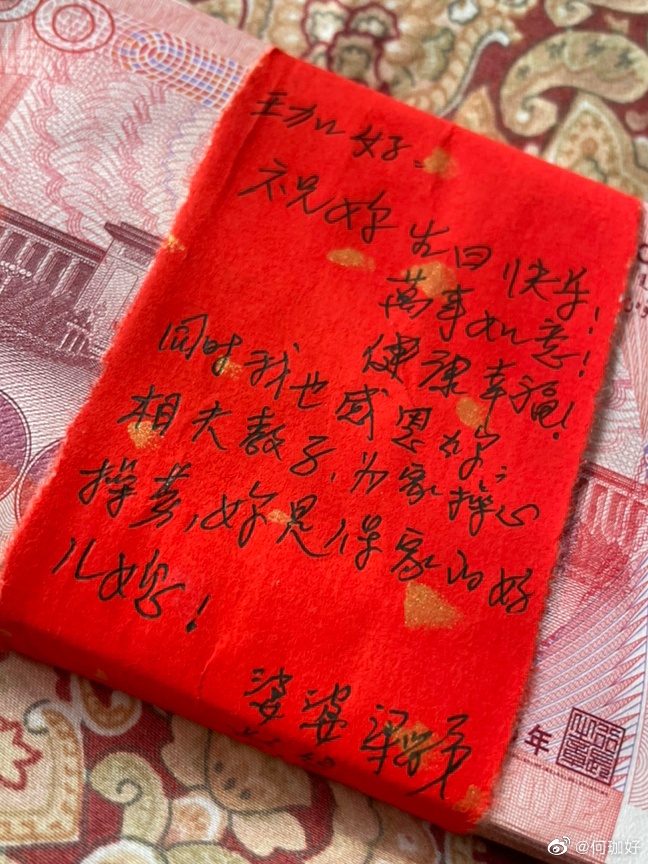 珈好、
祝妳生日快乐！
萬事如意！
健康幸福！
同时我也感恩妳，
相夫教子，为家操心
操劳，妳是保家的好
儿媳！
婆婆 梁
年
@何珈好